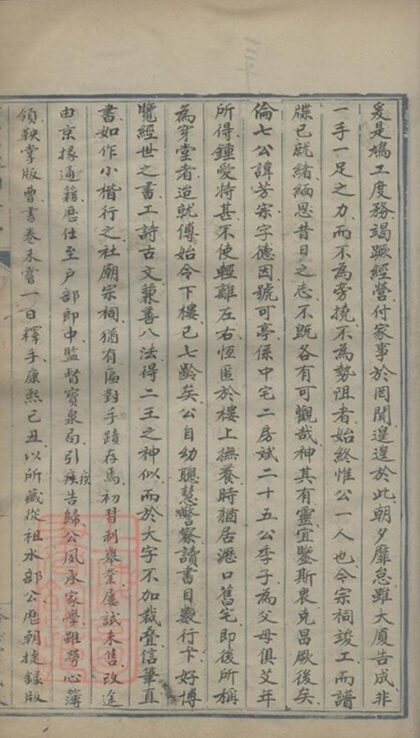 爰是鳩工度務竭蹶經營付家事於罔聞遑遑於此朝夕靡怠雖大厦告成非
一手一足之力而不為旁撓不為勢阻者始終惟公一人也今宗祠竣工而譜
牒已就緒緬思昔日之志不既各有可觀哉神其有靈宜鑒斯衷克昌厥後矣
倫七公諱芳宗字德因號可亭係中宅二房斌二十五公季子為父母俱艾年
所得鍾愛持甚不使輕離左右恆匿於樓上撫養時猶居瀝口舊宅即後所稱
為穿堂者迨就傅始令下樓已七齡矣公自幼聰慧警察讀書目數行下好博
覽經世之書工詩古文兼善八法得二王之神似而於大字不加裁疊信筆直
書如作小楷行之社廟宗祠猶有匾對手蹟存焉初習制舉業屢試未售改途
由京掾通籍歷任至戶部郎中監督寶泉局引疾告歸公風承家學雖勞心簿
領鞅掌版曹書卷未嘗一日釋手康熙己丑以所藏從祖水部公歷朝捷錄版